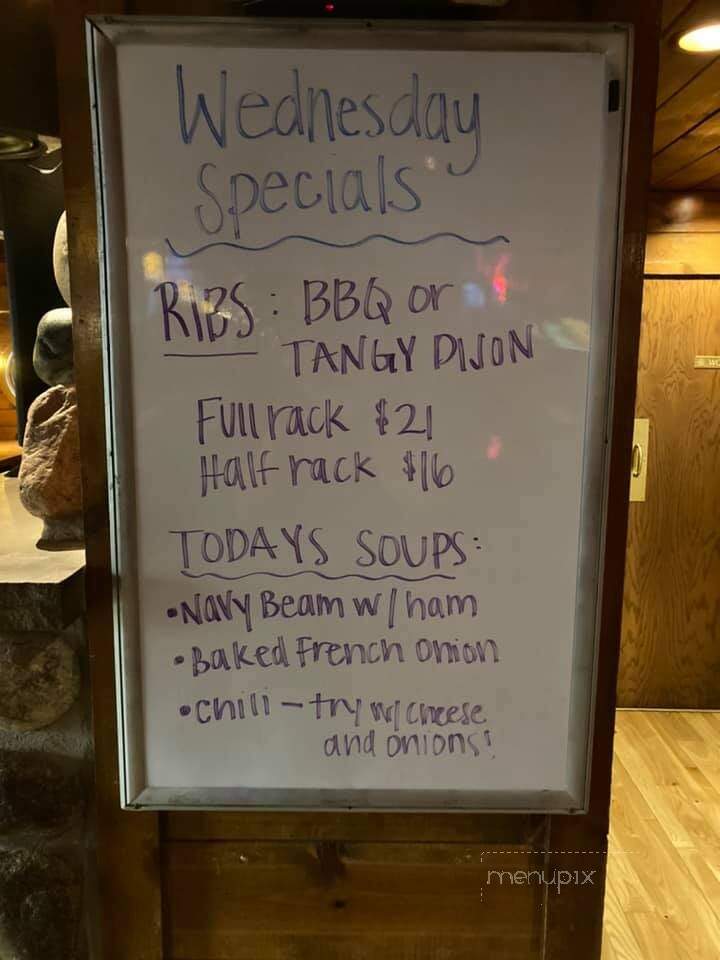 Wednesday
Specials
RIBS: BBQ or
TANGY DIJON
Full rack $21
Half rack $16
TODAYS SOUPS:
•Navy Beam w/ham
•Baked French Onion
•chili – try w/cheese
and onions!
menupix